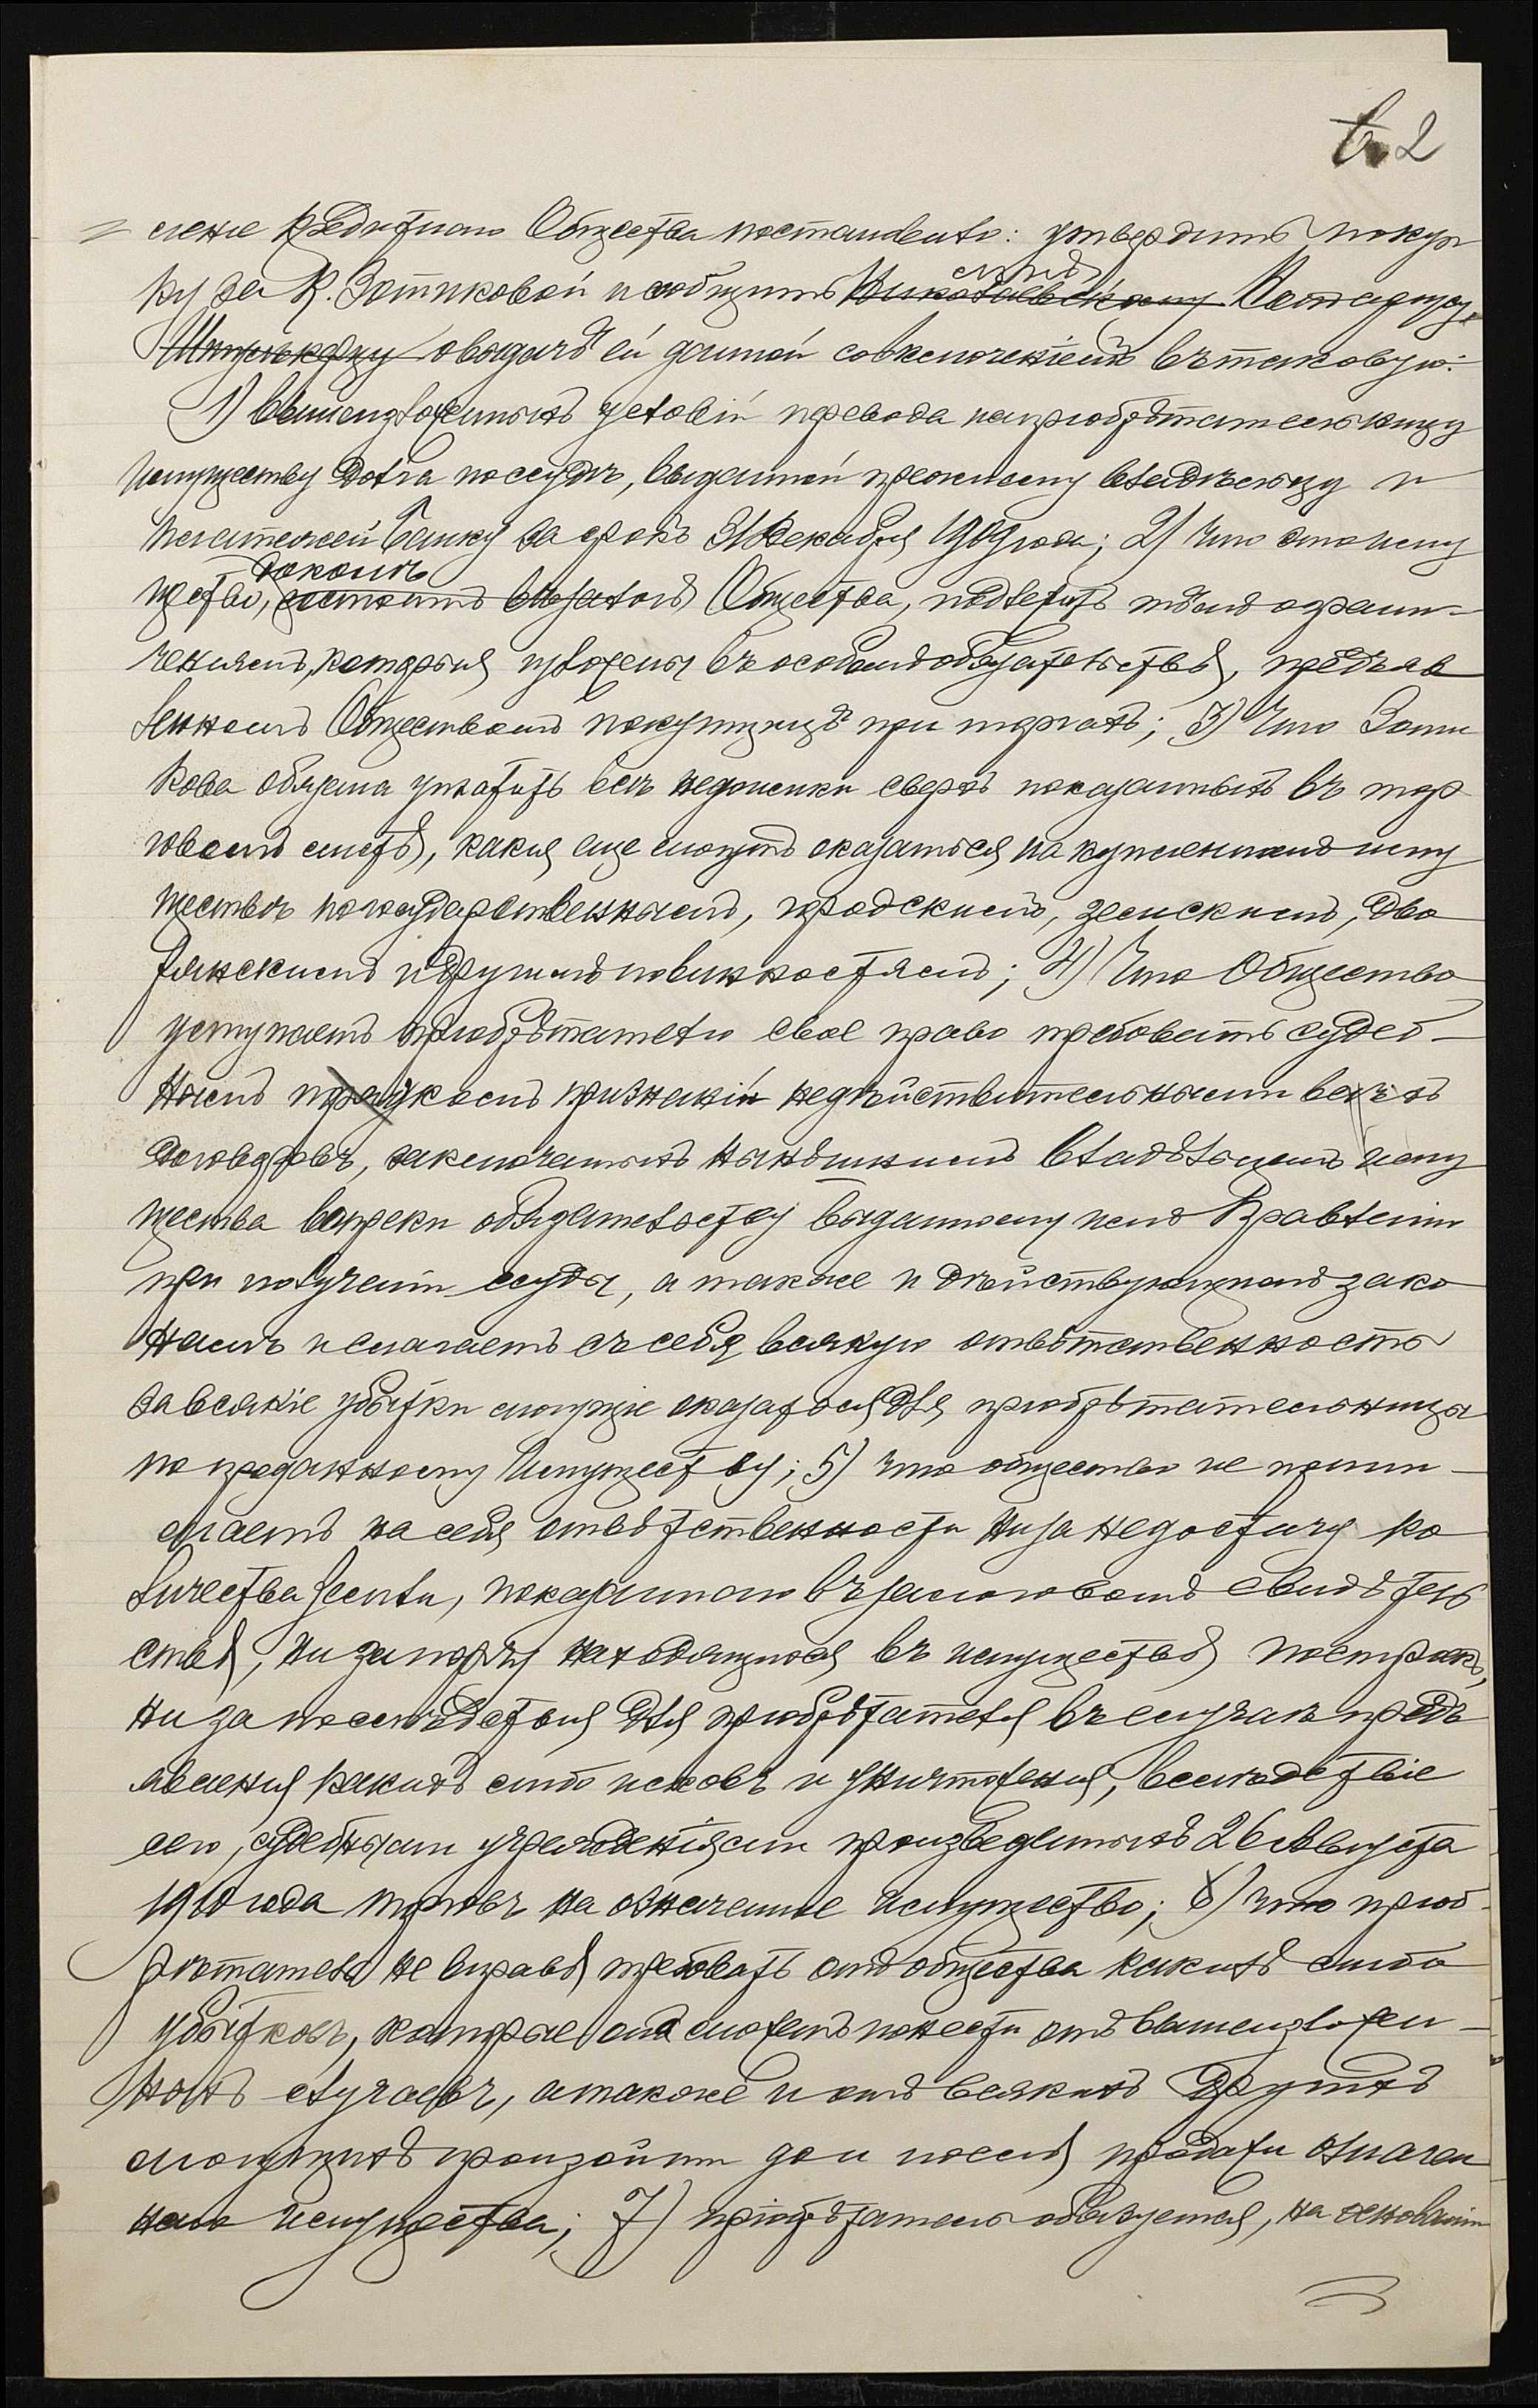 2
ленiе Кредитнаго Общества постановило: утвердить покуп
ку за К. Зотиковой и сообщить Николаевскому Нотарiусу,
о выдачѣ ей данной со включенiемъ въ таковую:
1) вышеизложенныхъ условiй перевода на прiобрѣтательницу
имущества долга по ссудѣ, выданной прежнему владѣльцу и
платежей банку за срокъ 31 Декабря 1909 года; 2) что это иму
доколѣ
щество, состоитъ въ залогѣ Общества, подлежитъ тѣмъ ограни-
ченiямъ, которыя изложены въ особомъ обязательствѣ, предъяв
ленномъ Обществомъ покупщицѣ при торгахъ; 3) Что Зоти
кова обязана уплатить всѣ недоимки сверхъ показанныхъ въ тор
говомъ листѣ, какiя еще могутъ оказаться на купленномъ иму
ществѣ по государственнымъ, городскимъ, земскимъ, дво
рянскимъ и другимъ повинностямъ; 4) Что Общество
уступаетъ прiобрѣтателю свое право требовать судеб-
нымъ порядкомъ признанiй недѣйствительными всѣхъ
договоровъ, заключенныхъ нынѣшнимъ владѣльцемъ иму
щества вопреки обязательству выданному имъ Правленiю
при полученiи ссуды, а также и дѣйствующимъ зако
намъ и слагаетъ съ себя всякую отвѣтственность
за всякiе убытки могущiе оказаться для прiобрѣтательницы
по проданному имуществу; 5) что общество не прини-
маетъ на себя отвѣтственности ни за недостачу ко
личества земли, показаннаго въ залоговомъ свидѣтель
ствѣ, ни за порчу находящихся въ имуществѣ построекъ,
ни за послѣдствiя для прiобрѣтателя въ случаѣ предъ
явленiя какихъ либо исковъ и уничтоженiя, вслѣдствiе
сего, судебными учрежденiями произведенныхъ 26 Августа
1910 года торговъ на означенное имущество; 6) что прiоб-
рѣтатель не вправѣ требовать отъ общества какихъ либо
убытковъ, которые она можетъ понести отъ вышеизложен-
ныхъ случаевъ, а также и отъ всякихъ другихъ
могущихъ произойти до и послѣ продажи означен
наго имущества; 7) прiобрѣтатель обязуется, на основанiи